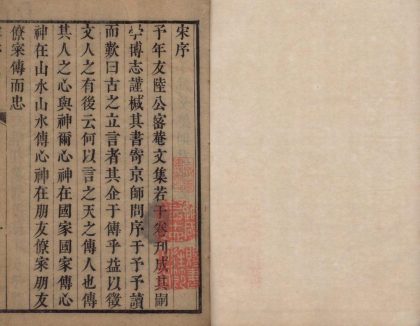 宋序
予年友陸公密菴文集若干卷刋成其嗣
學博志謹槭其書寄京師問序于予予讀
而歎曰古之立言者其企于傳乎益以徵
文人之有後云何以言之天之傳人也傳
其人之心與神爾心神在國家國家傳心
神在山水山水傳心神在朋友僚宷朋友
僚宷傳而忠